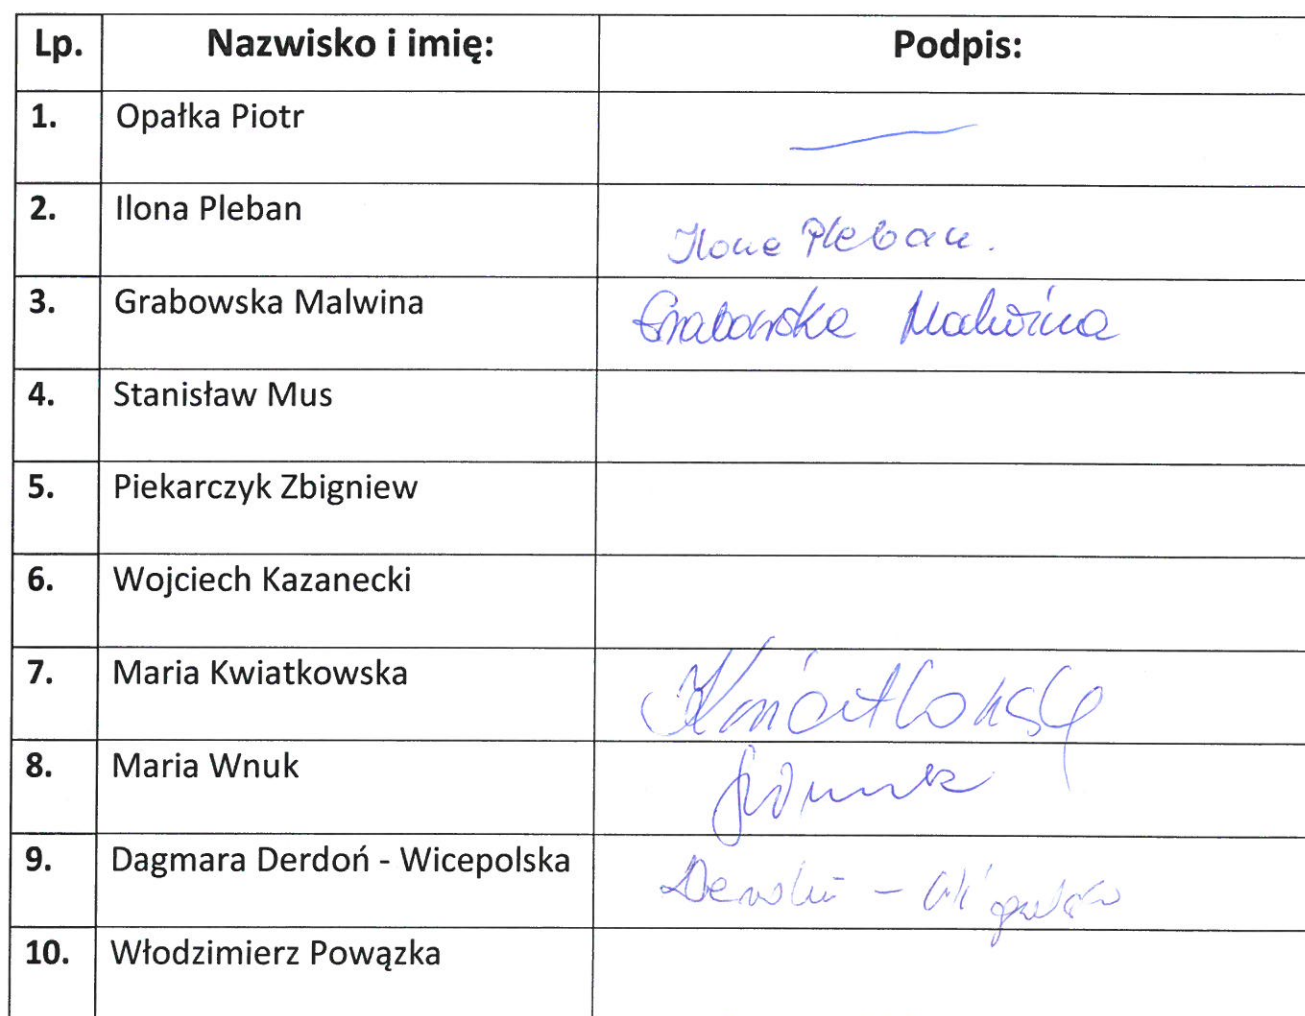 Lp. Nazwisko i imię: Podpis:
1. Opałka Piotr
2. Ilona Pleban Ilona Pleban.
3. Grabowska Malwina Grabowska Malwina
4. Stanisław Mus
5. Piekarczyk Zbigniew
6. Wojciech Kazanecki
7. Maria Kwiatkowska Kwiatkowska
8. Maria Wnuk
9. Dagmara Derdoń - Wicepolska
10. Włodzimierz Powązka